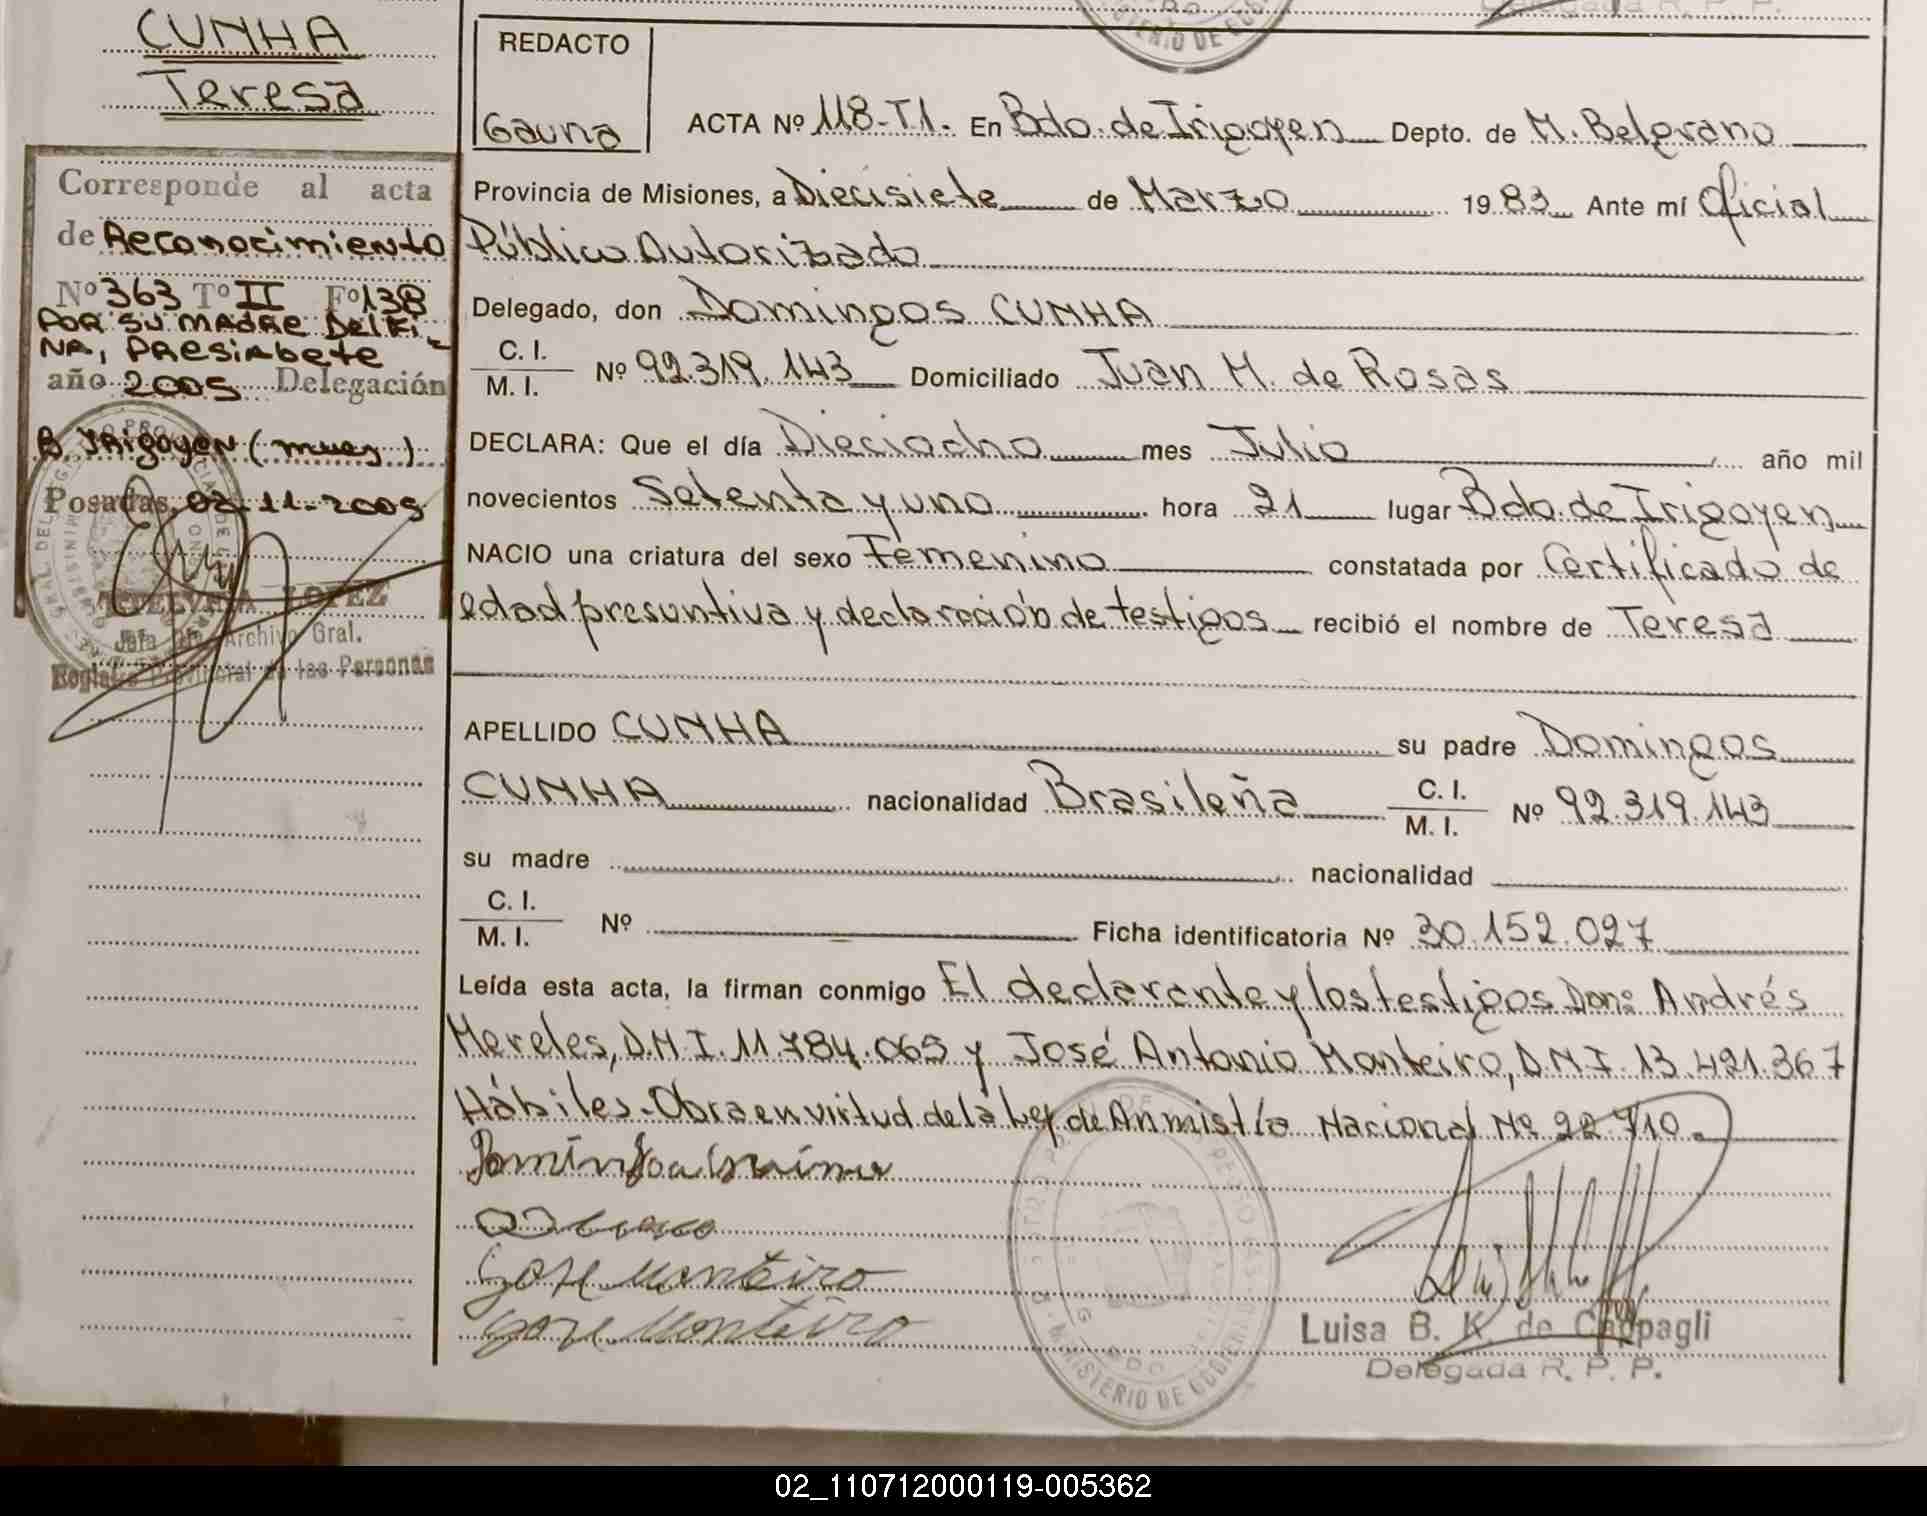 CUNHA
Teresa
REDACTO
Gauna
ACTA Nº 118-T1. En Bdo. de Irigoyen Depto. de M. Belgrano
Provincia de Misiones, a Diecisiete de Marzo 1983 Ante mí Oficial
Público Autorizado
Delegado, don Domingos CUNHA
C. I.
M. I. Nº 92.319.143 Domiciliado Juan M. de Rosas
DECLARA: Que el día Dieciocho mes Julio año mil
novecientos Setenta y uno hora 21 lugar Bdo. de Irigoyen
NACIO una criatura del sexo Femenino constatada por Certificado de
edad presuntiva y declaración de testigos recibió el nombre de Teresa
APELLIDO CUNHA su padre Domingos
CUNHA nacionalidad Brasileña C. I.
M. I. Nº 92.319.143
su madre nacionalidad
C. I.
M. I. Nº Ficha identificatoria Nº 30.152.027
Leída esta acta, la firman conmigo El declarante y los testigos Don: Andrés
Mereles, D.N.I. 11.784.065 y José Antonio Monteiro, D.N.I. 13.421.367
Hábiles. Obra en virtud de la Ley de Anmistía Nacional Nº 22.710.
Jose Monteiro
Jose Monteiro
Luisa B. K. de Cappagli
Delegada R. P. P.
MINISTERIO DE GOBIERNO
Corresponde al acta
de Reconocimiento
Nº 363 Tº II Fº 138
POR SU MADRE DELFI-
NA, PRESIABETE
año 2005 Delegación
B. IRIGOYEN (Mnes)
Posadas, 02-11-2005
LOPEZ
Jefa Archivo Gral.
Registro Provincial de las Personas
02_110712000119-005362